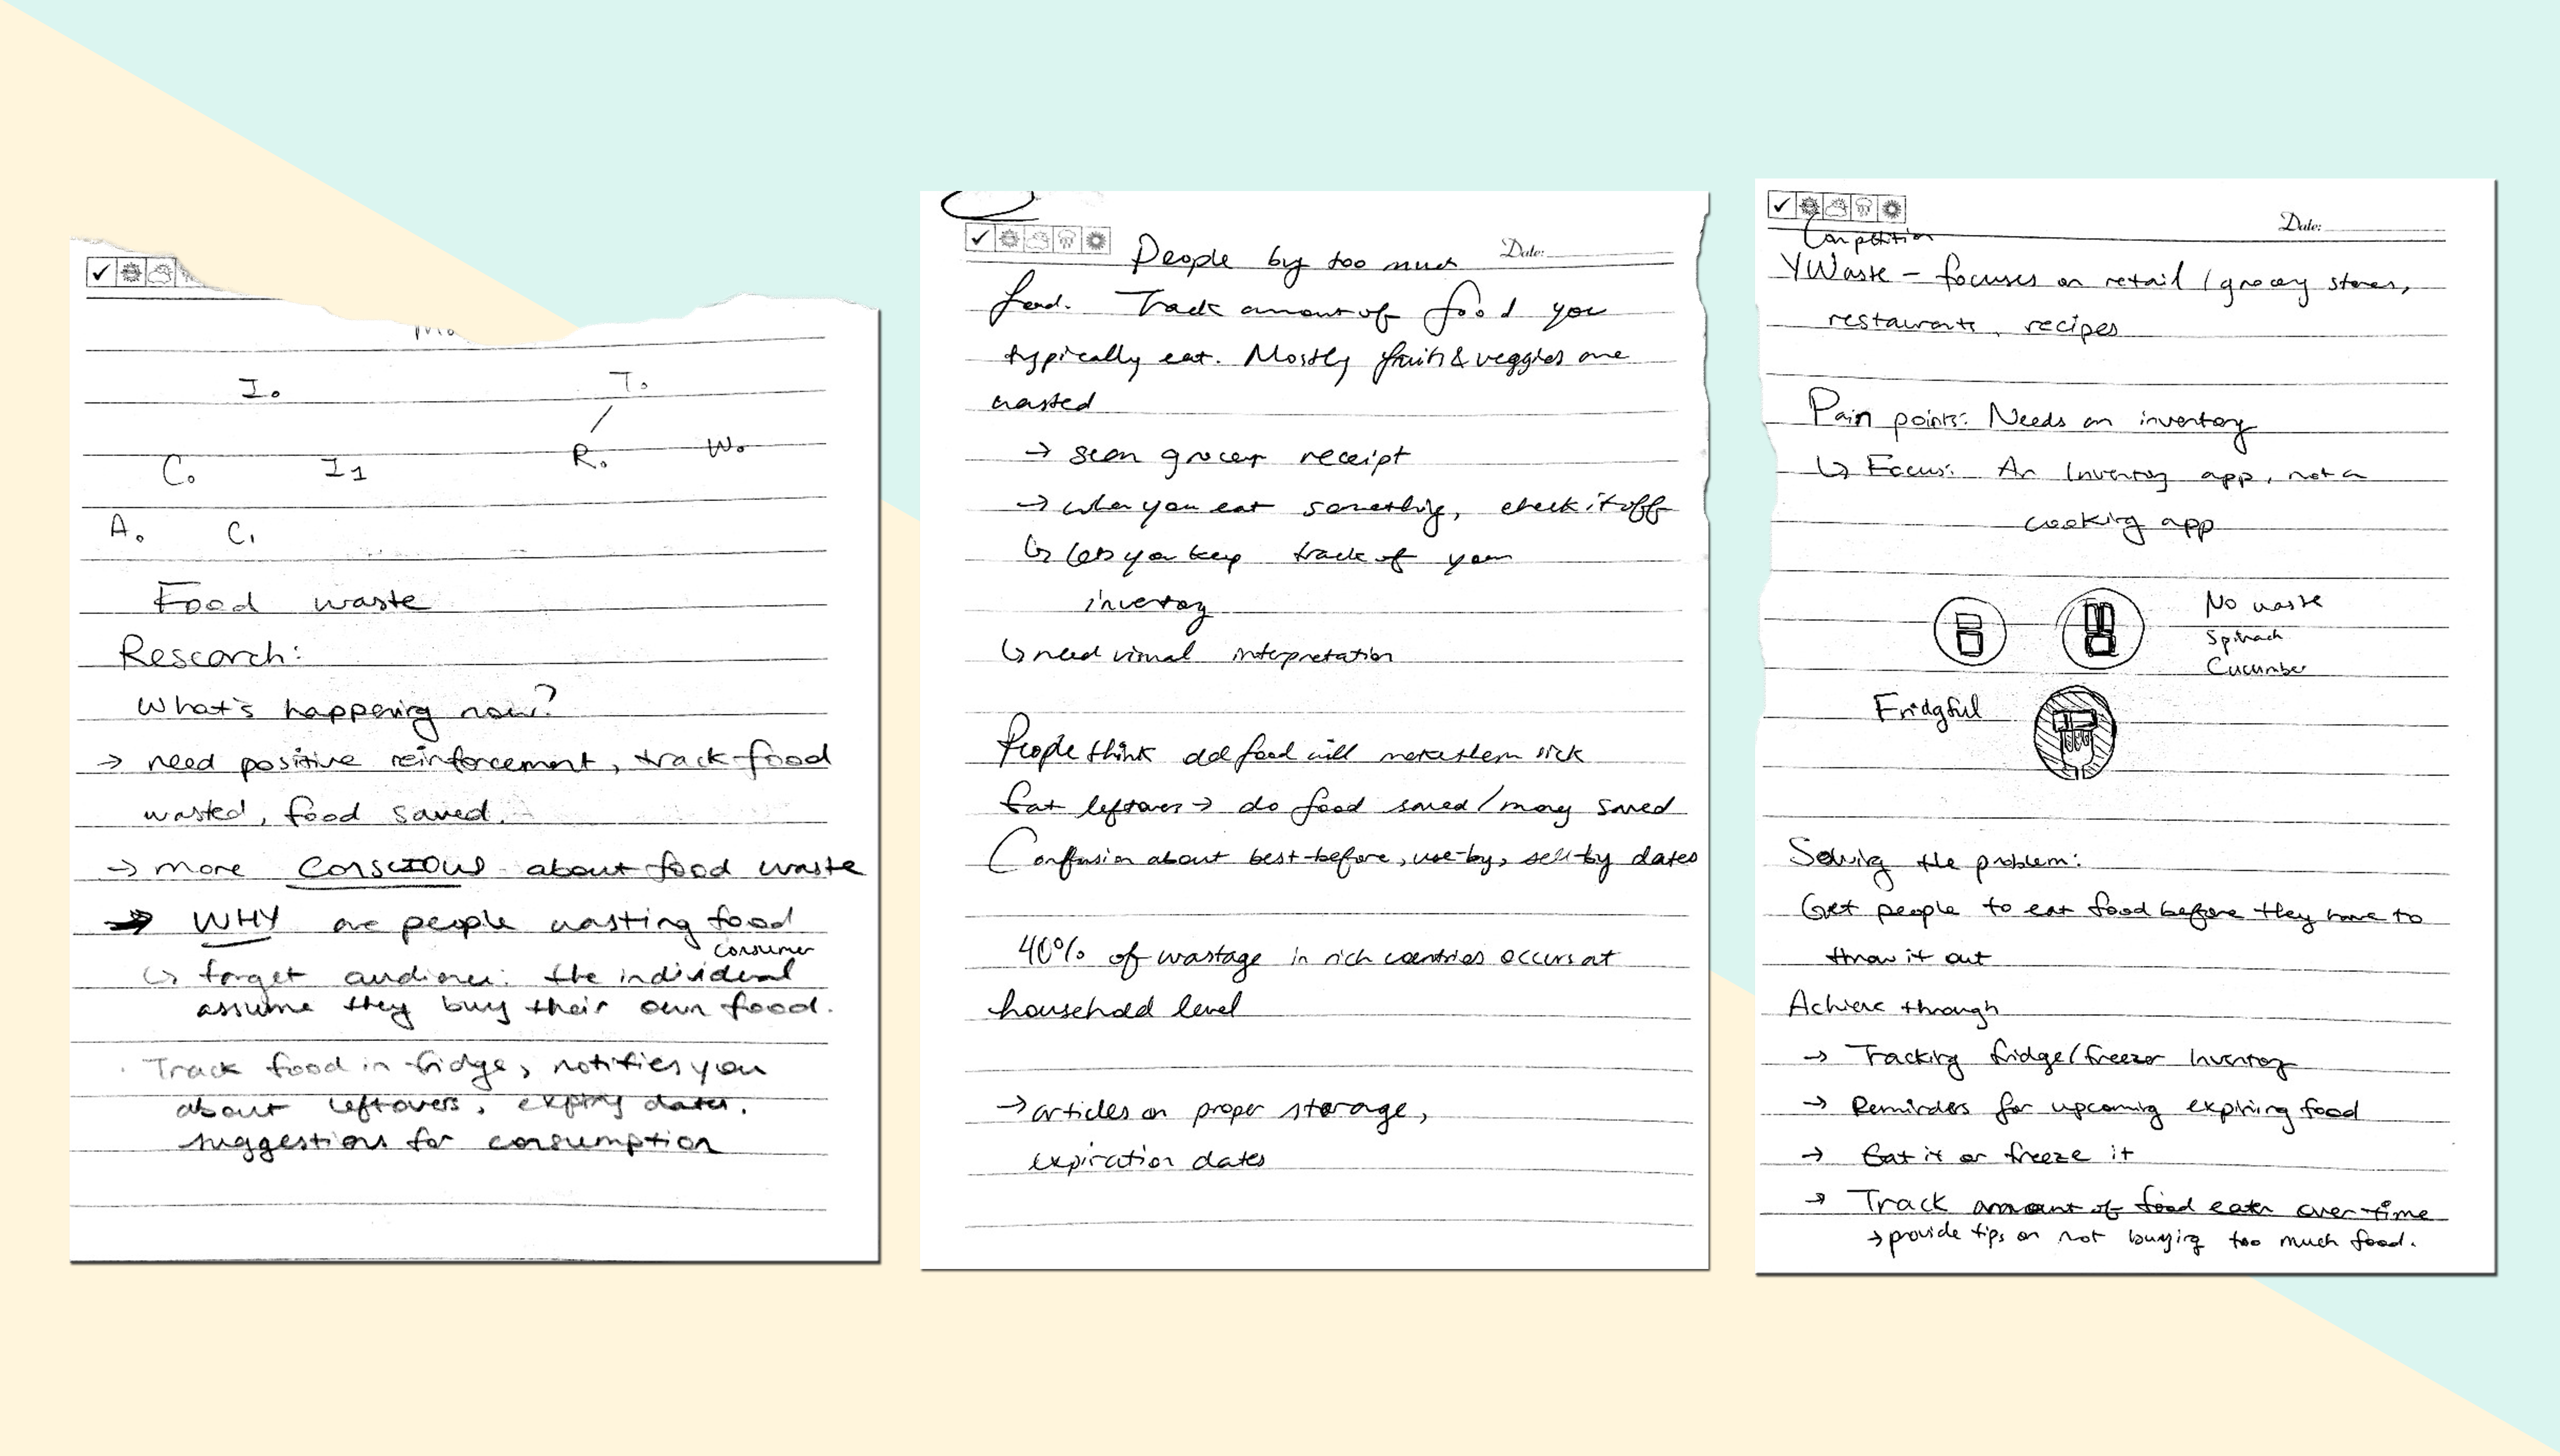 I.
T.
R.
W.
C.
I1
A.
C.
Food waste
Research:
What's happening now?
→ need positive reinforcement, track food
wasted, food saved.
→ more conscious about food waste
→ WHY are people wasting food
consumer
↳ target audience: the individual
assume they buy their own food.
· Track food in fridge, notifies you
about leftovers, expiry dates,
suggestions for consumption
Date:
People by too much
food. Track amount of food you
typically eat. Mostly fruits & veggies are
wasted
→ scan grocery receipt
→ when you eat something, check it off
↳ lets you keep track of your
inventory
↳ need visual interpretation
People think old food will make them sick
Eat leftovers → do food saved/money saved
Confusion about best-before, use-by, sell-by dates
40% of wastage in rich countries occurs at
household level
→ articles on proper storage,
expiration dates
Date:
Competition
YWaste - focuses on retail / grocery stores,
restaurants, recipes
Pain points: Needs an inventory
↳ Focus: An Inventory app, not a
cooking app
No waste
Spinach
Cucumber
Fridgful
Solving the problem:
Get people to eat food before they have to
throw it out
Achieve through
→ Tracking fridge/freezer Inventory
→ Reminders for upcoming expiring food
→ Eat it or freeze it
→ Track amount of food eaten over time
→ provide tips on not buying too much food.